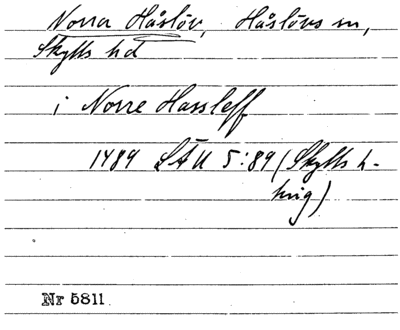 Norra Håslöv, Håslövs sn,
Skytts hd
i Norre Hassleff
1489 LÄU 5:89 (Skytts h-
hng)
Nr 5811